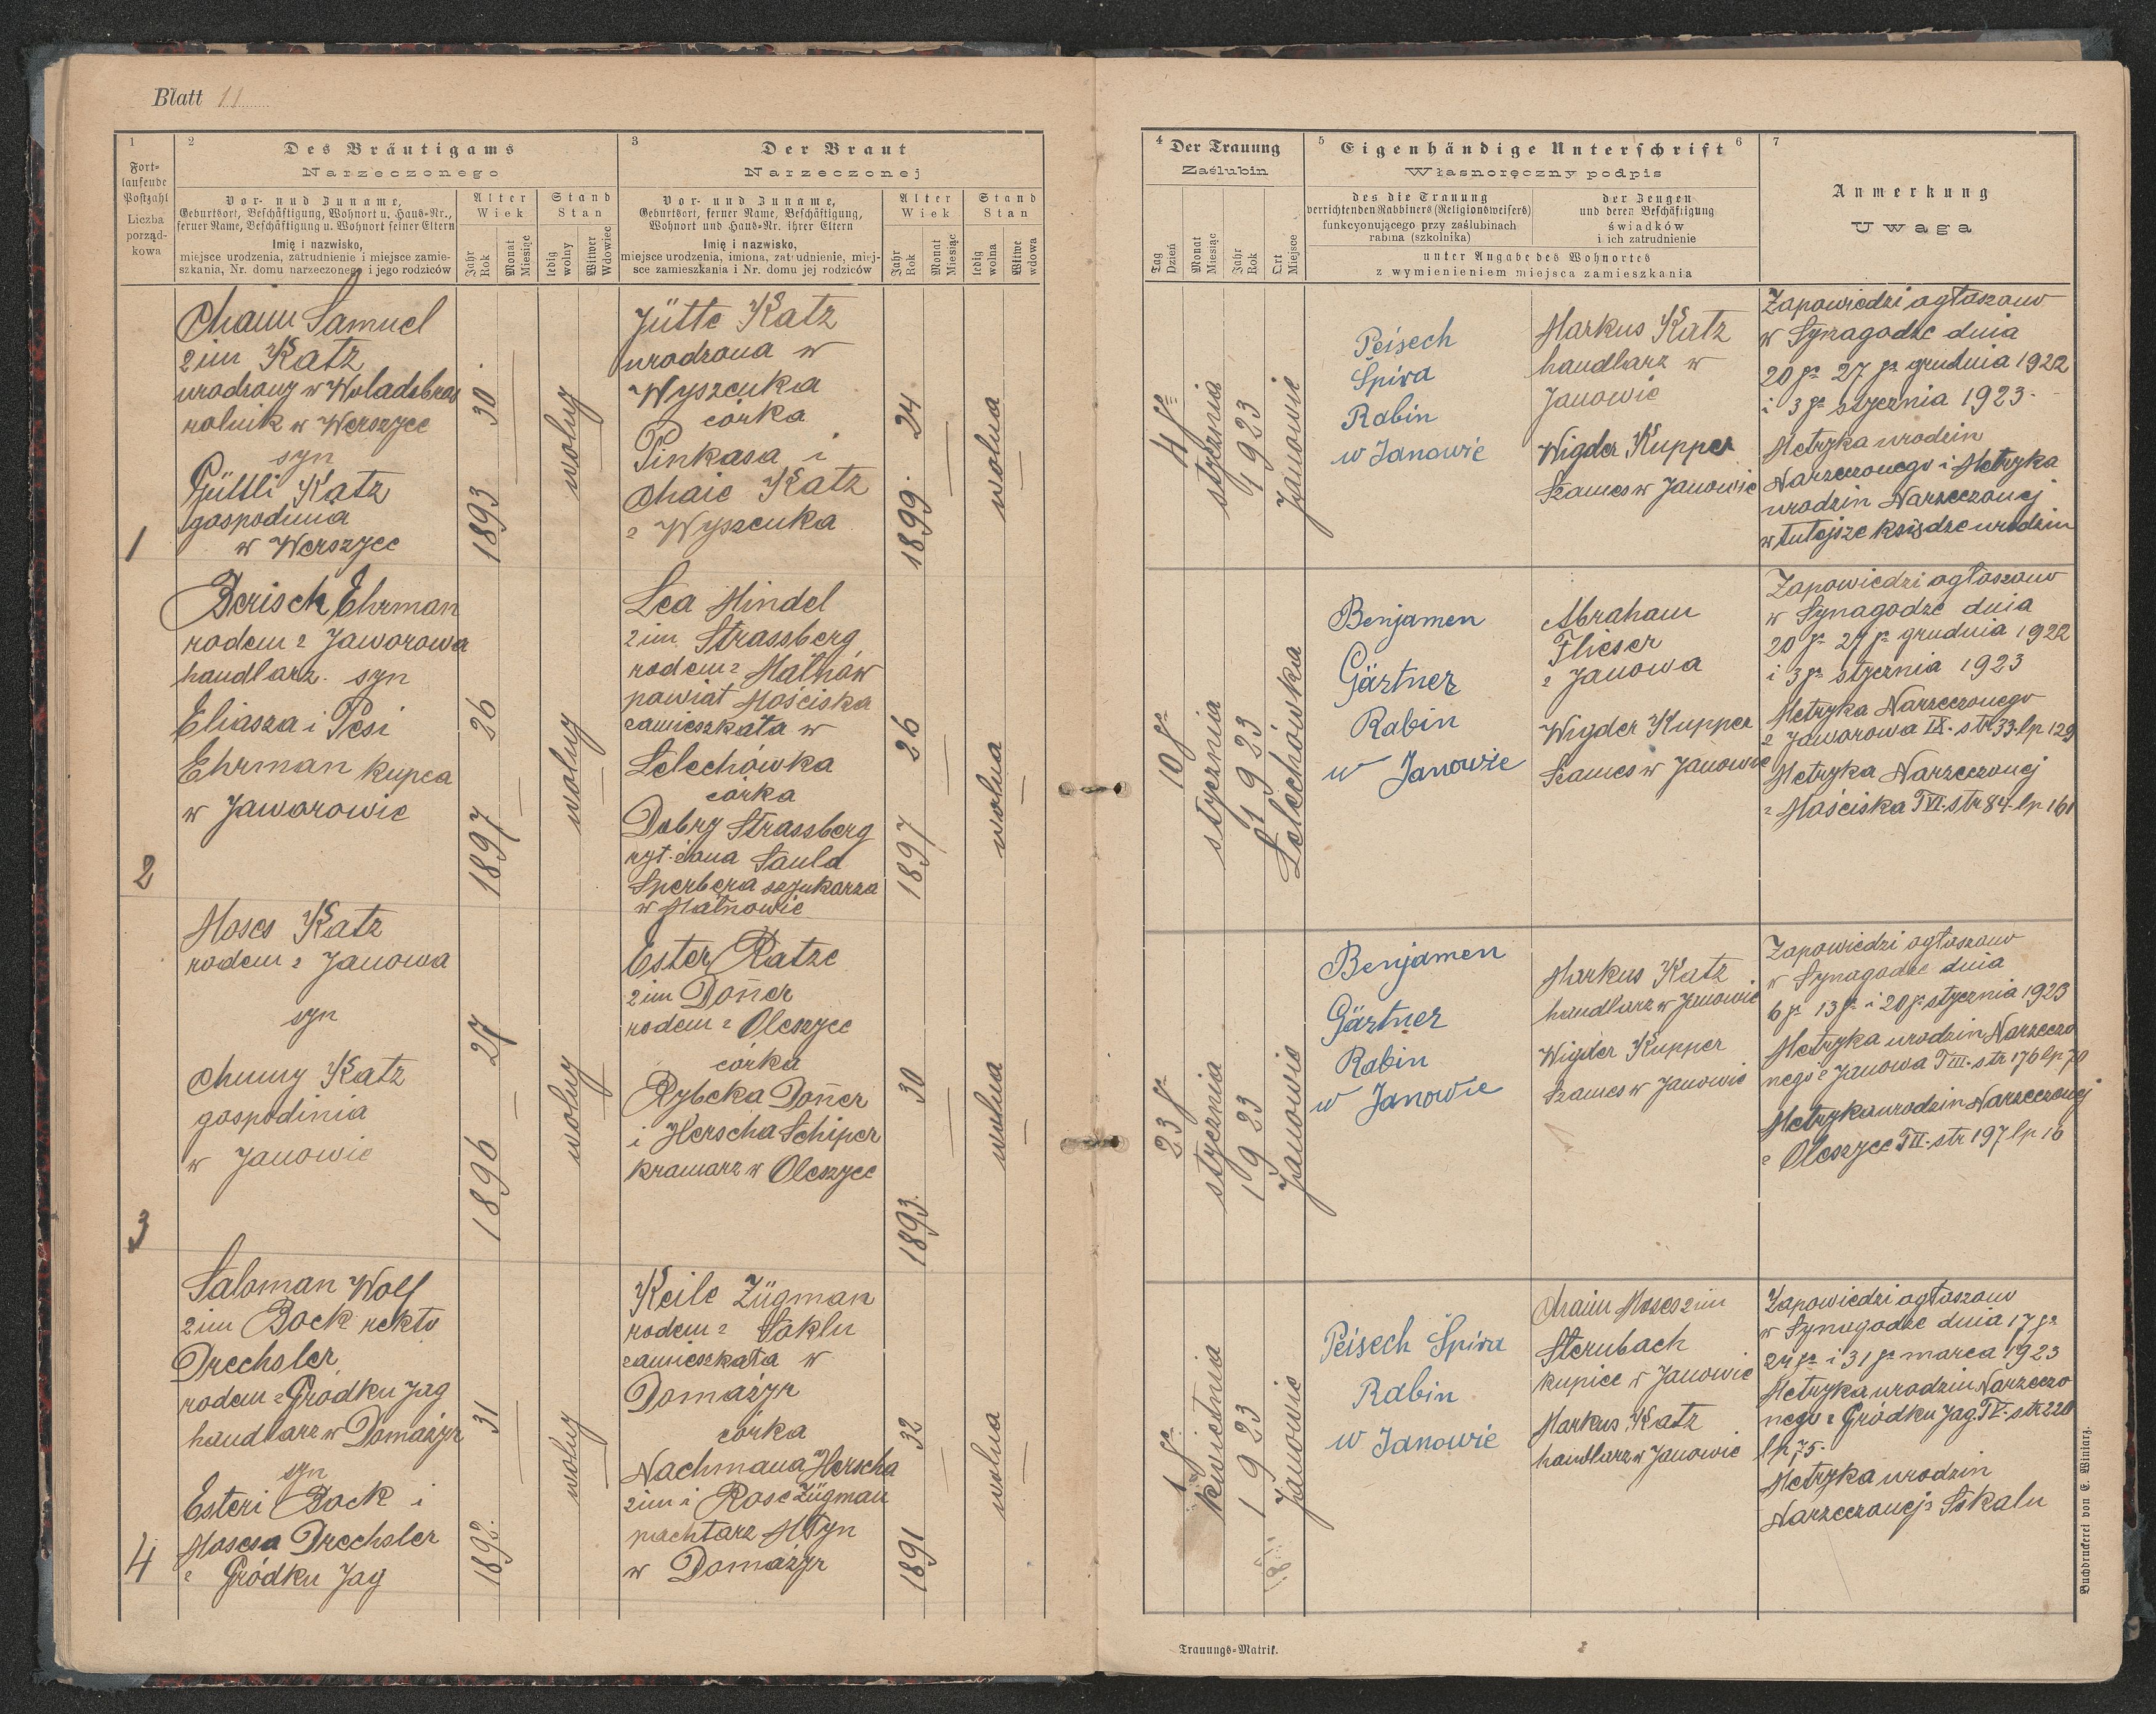 Blatt 11
1
Fort-
laufende
Postzahl
Liczba
porząd-
kowa
2
Des Bräutigams
Narzeczonego
Vor- und Zuname,
Geburtsort, Beschäftigung, Wohnort u. Haus-Nr.,
ferner Name, Beschäftigung u. Wohnort seiner Eltern
Imię i nazwisko,
miejsce urodzenia, zatrudnienie i miejsce zamie-
szkania, Nr. domu narzeczonego i jego rodziców
Alter
Wiek
Jahr
Rok
Monat
Miesiąc
Stand
Stan
ledig
wolny
Witwer
Wdowiec
3
Der Braut
Narzeczonej
Vor- und Zuname,
Geburtsort, ferner Name, Beschäftigung,
Wohnort und Haus-Nr. ihrer Eltern
Imię i nazwisko,
miejsce urodzenia, imiona, zatrudnienie, miej-
sce zamieszkania i Nr. domu jej rodziców
Alter
Wiek
Jahr
Rok
Monat
Miesiąc
Stand
Stan
ledig
wolna
Witwe
wdowa
4
Der Trauung
Zaślubin
Tag
Dzień
Monat
Miesiąc
Jahr
Rok
Ort
Miejsce
5
Eigenhändige Unterschrift
6
Własnoręczny podpis
des die Trauung
verrichtenden Rabbiners (Religionsweisers)
funkcyonującego przy zaślubinach
rabina (szkolnika)
der Zeugen
und deren Beschäftigung
świadków
i ich zatrudnienie
unter Angabe des Wohnortes
z wymienieniem miejsca zamieszkania
7
Anmerkung
Uwaga
1
Chaim Samuel
2im Katz
urodzony w Woladobros
rolnik w Werszyce
syn
Güttli Katz
gospodinia
w Werszyce
30
1893
wolny
Jütte Katz
urodzona w
Wyszenka
córka
Pinkasa i
Chaie Katz
z Wyszenka
24
1899
wolna
4go
stycznia
1923
Janowie
Peisech
Spira
Rabin
w Janowie
Markus Katz
handlarz w
Janowie
Wigder Kupper
Szames w Janowie
Zapowiedzi ogłaszano
w Synagodze dnia
20go 27go grudnia 1922
i 3go stycznia 1923
Metryka urodzin
Narzeczonego i Metryka
urodzin Narzeczonej
w tutejsze księdze urodzin
2
Berisch Ehrman
rodem z Jaworowa
handlarz syn
Eliasza i Pesi
Ehrman kupca
w Jaworowie
26
1897
wolny
Lea Mindel
2im Strassberg
rodem z Małnów
powiat Mościska
zamieszkała w
Lelechówka
córka
Dobry Strassberg
ryt. żona Saula
Sperbera szynkarza
w Małnowie
26
1897
wolna
10go
stycznia
1923
Lelechówka
Benjamen
Gärtner
Rabin
w Janowie
Abraham
Flieser
z Janowa
Wigder Kupper
Szames w Janowie
Zapowiedzi ogłaszano
w Synagodze dnia
20go 27go grudnia 1922
i 3go stycznia 1923
Metryka Narzeczonego
z Jaworowa IX. str 33 lp 129
Metryka Narzeczonej
z Mościska TVI. str 84. lp 161
3
Moses Katz
rodem z Janowa
syn
Chumy Katz
gospodinia
w Janowie
27
1896
wolny
Ester Ratze
2im Doner
rodem z Oleszyce
córka
Rybcka Doner
i Herscha Schiper
kramarz w Oleszyce
30
1893
wolna
23go
stycznia
1923
Janowie
Benjamen
Gärtner
Rabin
w Janowie
Markus Katz
handlarz w Janowie
Wigder Kupper
Szames w Janowie
Zapowiedzi ogłaszano
w Synagodze dnia
6go 13go i 20go stycznia 1923
Metryka urodzin Narzeczo
nego z Janowa TIII. str 176 lp 70
Metryka urodzin Narzeczonej
z Oleszyce TII. str 197 lp 16
4
Saloman Wolf
2im Bock rekto
Drechsler
rodem z Gródku Jag
handlarz w Domażyr
syn
Esteri Bock i
Mosesa Drechsler
z Gródku Jag
31
1892
wolny
Keile Zügman
rodem z Sokln
zamieszkała w
Domażyr
córka
Nachmana Herscha
2im i Rose Zügman
pachtarz Młyn
w Domażyr
32
1891
wolna
1go
kwietnia
1923
Janowie
Peisech Spira
Rabin
w Janowie
Chaim Moses 2im
Sternbach
kupiec w Janowie
Markus Katz
handlarz w Janowie
Zapowiedzi ogłaszano
w Synagodze dnia 17go
24go i 31go marca 1923
Metryka urodzin Narzeczo
nego z Gródku Jag. TV. str 220
lp 75.
Metryka urodzin
Narzeczonej z Sskaln
Trauungs-Matrik.
2
Buchdruckerei von E. Winiarz.